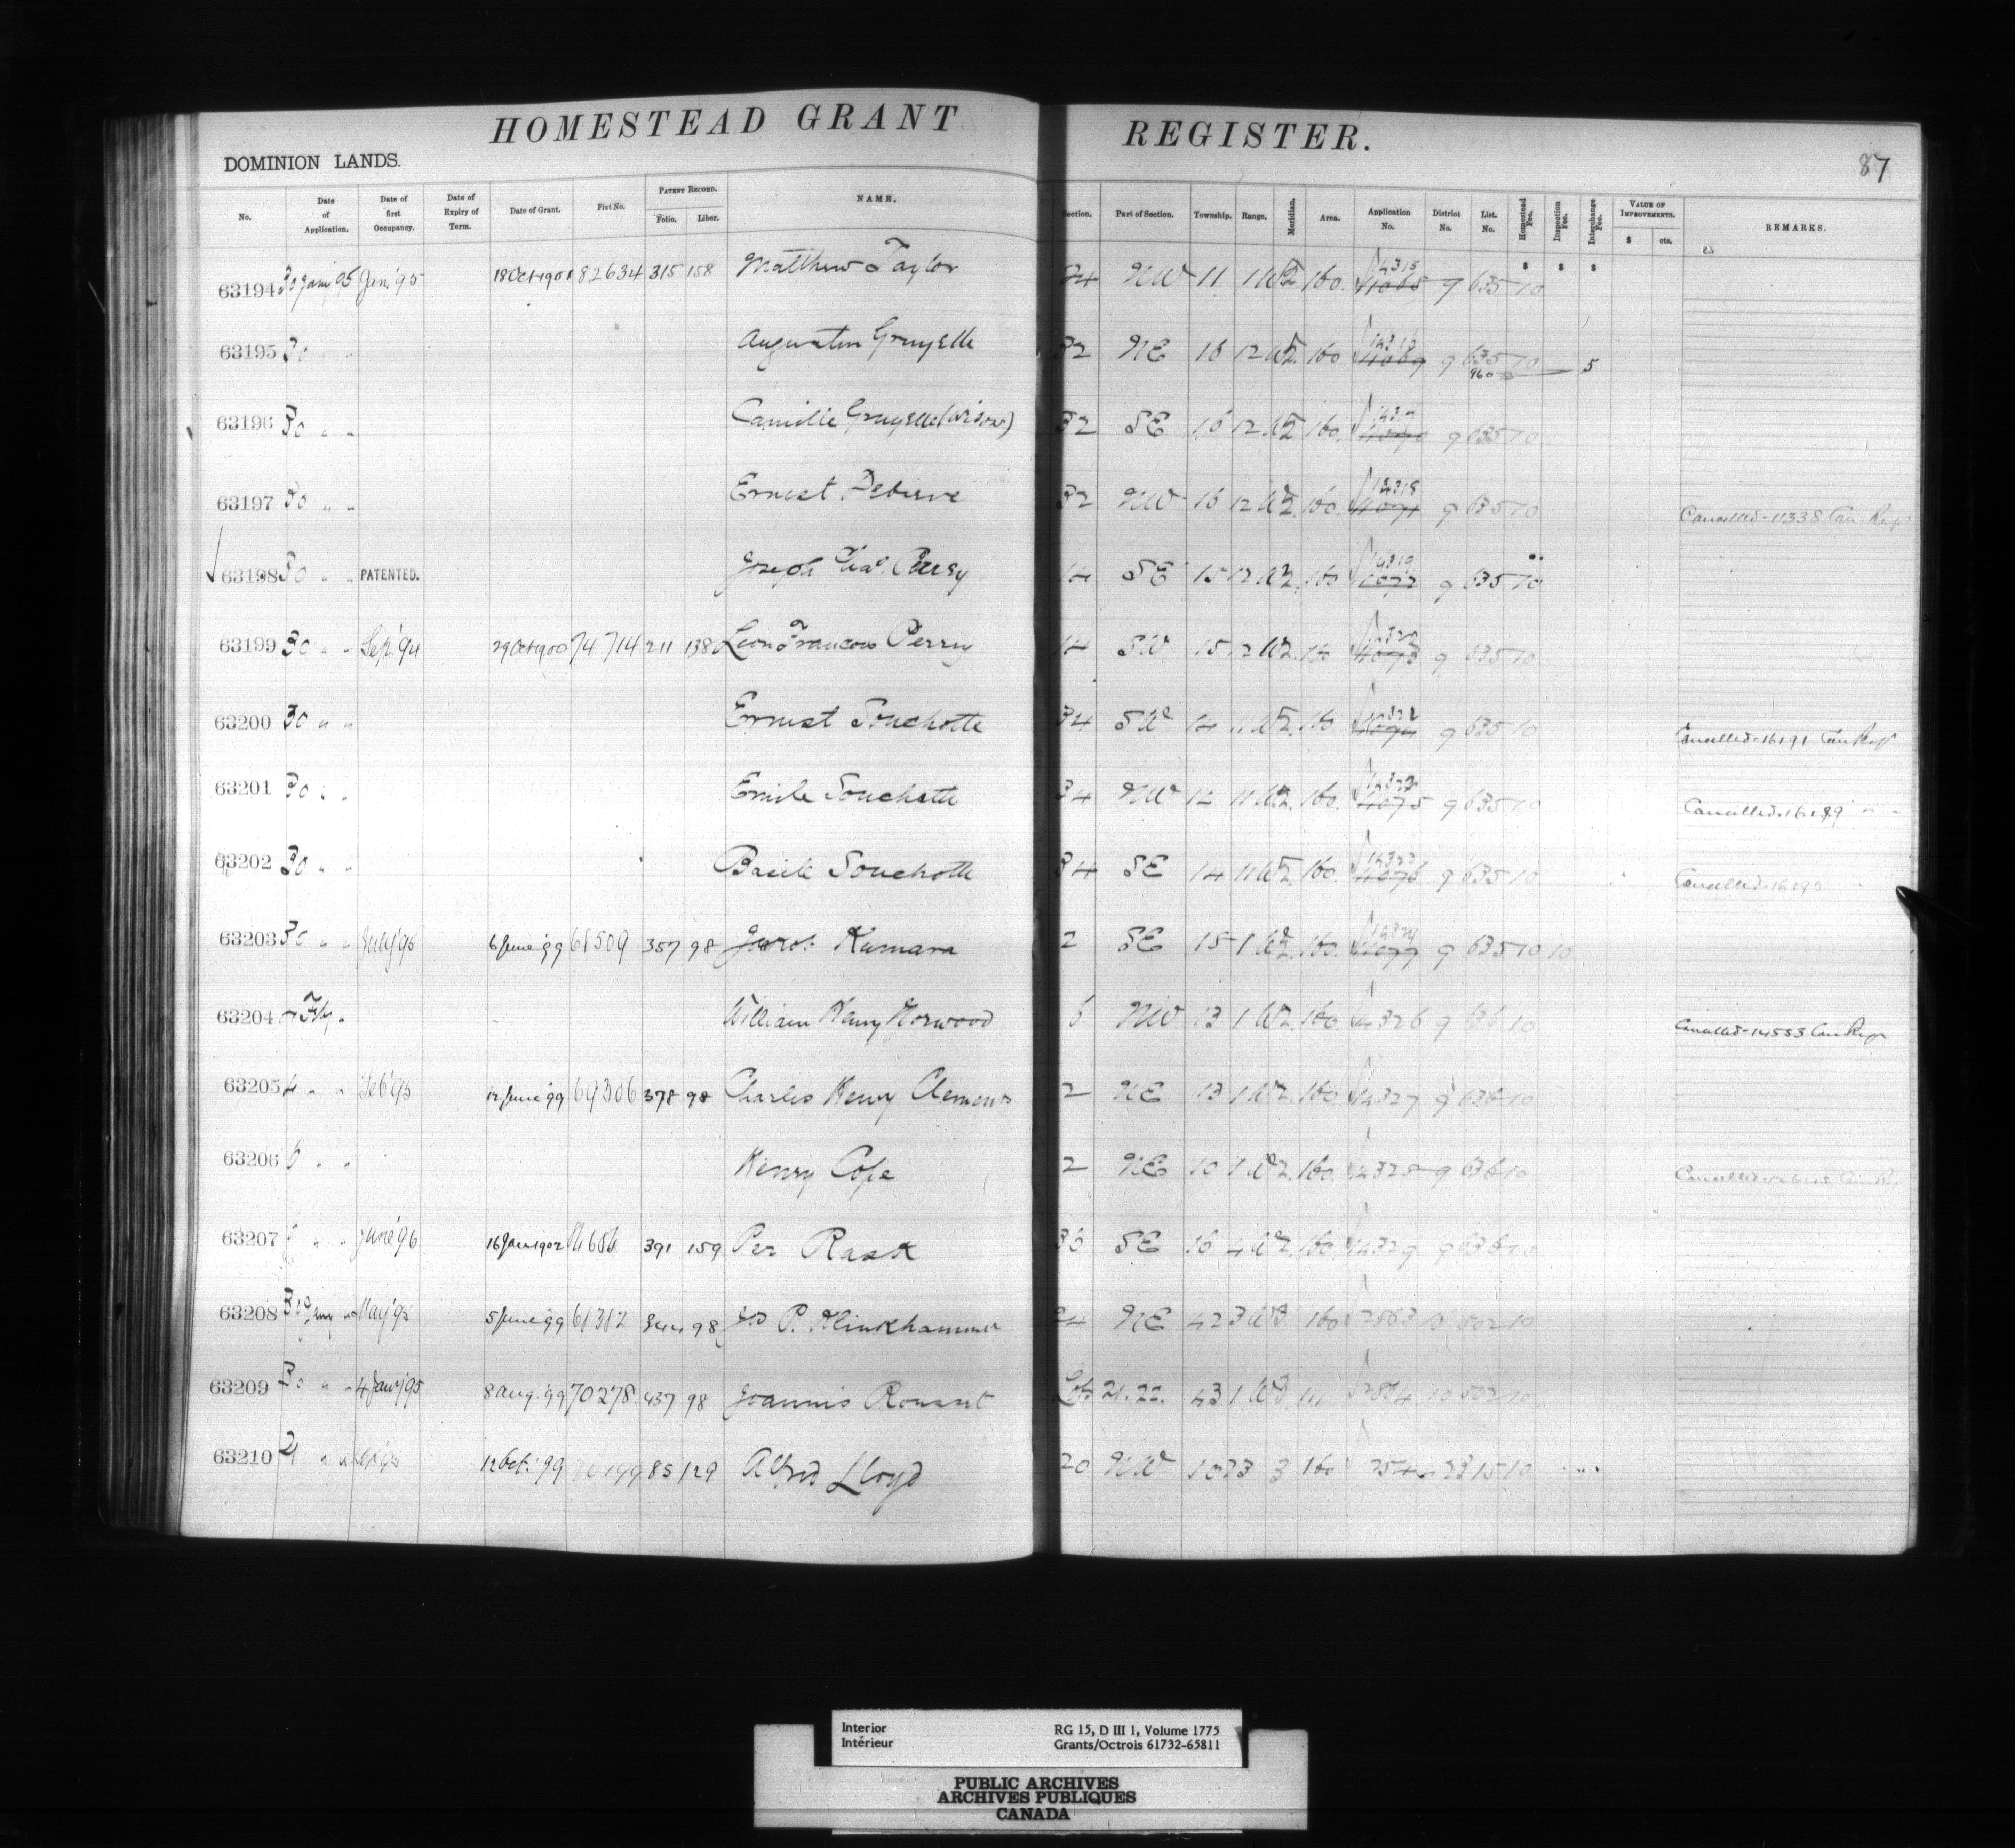 HOMESTEAD GRANT REGISTER.
DOMINION LANDS.
87
No. Date of Application. Date of first Occupancy. Date of Expiry of Term. Date of Grant. Fiat No. PATENT RECORD. Folio. Liber. NAME. Section. Part of Section. Township. Range. Meridian. Area. Application No. District No. List. No. Homestead Fee. Inspection Fee. Interchange Fee. VALUE OF IMPROVEMENTS. $ cts. REMARKS.
63194 30 Jany 95 Jan' 95 18 Oct 1901 82634 315 158 Matthew Taylor 24 NW 11 1 W2 160 14315 9 635 10
63195 30 " " Augustin Gruyelle 32 NE 16 12 W2 160 14316 9 635 10 960 5
63196 30 " " Camille Gruyelle (Widow) 32 SE 16 12 W2 160 9 635 10
63197 30 " " Ernest 32 NW 16 12 W2 160 14318 9 635 10 Cancelled - 11338 Can Reg
63198 30 " " PATENTED. Joseph Perry 14 SE 15 12 W2 160 14319 9 635 10
63199 30 " " Sep' 94 29 Oct 1900 74714 211 138 Leon Francois Perry 14 SW 15 12 W2 160 14320 9 635 10
63200 30 " " Ernest Souchotte 34 SW 14 11 W2 160 9 635 10 Cancelled - 16191 Can Reg
63201 30 " " Emile Souchotte 34 NW 14 11 W2 160 14322 9 635 10 Cancelled - 16189 " "
63202 30 " " Basile Souchotte 34 SE 14 11 W2 160 14323 9 635 10 Cancelled
63203 30 " " July '95 6 June '99 357 98 Jacob Kumara 2 SE 15 1 W2 160 14324 9 635 10 10
63204 Feby " William Henry Norwood 6 NW 13 1 W2 160 14326 9 636 10 Cancelled - 14553 Can Reg
63205 4 " " Feb '95 12 June '99 69306 378 98 Charles Henry Clements 2 NE 13 1 W2 160 14327 9 636 10
63206 6 " " Henry Cope 2 NE 10 1 W2 160 14328 9 636 10 Cancelled
63207 " " June '96 16 Jan 1902 391 159 Per Rask 36 SE 16 4 W2 160 14329 9 636 10
63208 30 Jany " May '95 5 June 99 344 98 Jos P. Klinkhammer 24 NE 42 3 W3 160 2863 10 502 10
63209 30 " " 4 Jany '95 8 Aug. '99 70278 437 98 Joannis Rousset Lots 21.22. 43 1 W3 111 2864 10 502 10
63210 21 " " 12 Oct. '99 85 129 Alfred Lloyd 20 NW 10 23 3 160 10
Interior
Intérieur
RG 15, D III 1, Volume 1775
Grants/Octrois 61732-65811
PUBLIC ARCHIVES
ARCHIVES PUBLIQUES
CANADA